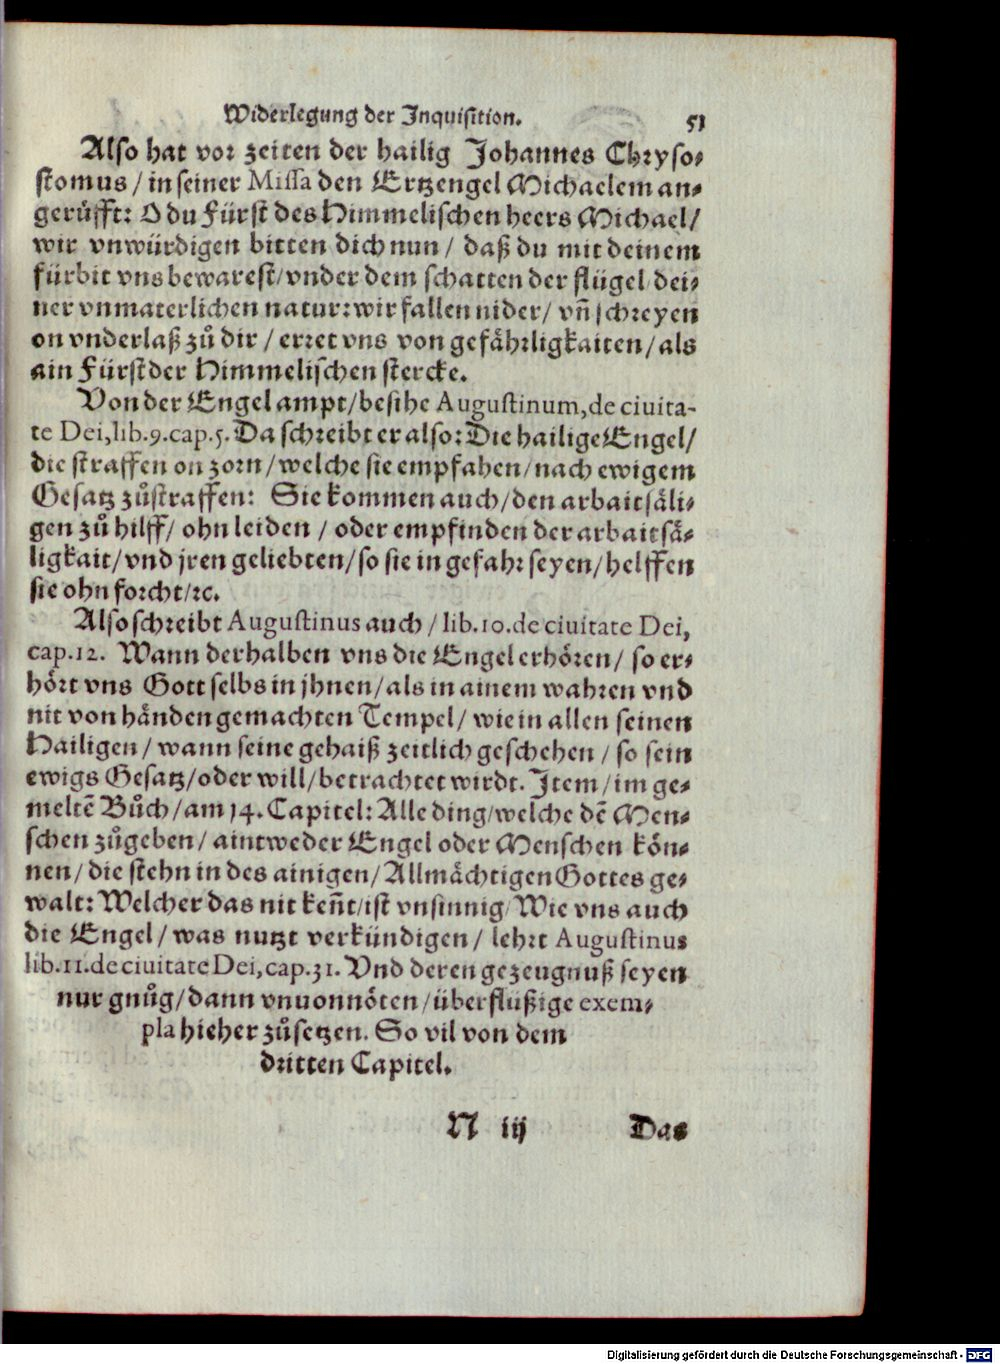 Widerlegung der Inquisition. 51
Also hat vor zeiten der hailig Johannes Chryso-
stomus / in seiner Missa den Ertzengel Michaelem an-
gerůfft: O du Fürst des Himmelischen heers Michael /
wir vnwürdigen bitten dich nun / daß du mit deinem
fürbit vns bewarest / vnder dem schatten der flügel dei-
ner vnmaterlichen natur: wir fallen nider / vñ schreyen
on vnderlaß zů dir / erret vns von gefåhrligkaiten / als
ain Fürst der Himmelischen stercke.
Von der Engel ampt / besihe Augustinum, de ciuita-
te Dei, lib. 9. cap. 5. Da schreibt er also: Die hailige Engel /
die straffen on zorn / welche sie empfahen / nach ewigem
Gesatz zůstraffen: Sie kommen auch / den arbaitsåli-
gen zů hilff / ohn leiden / oder empfinden der arbaitså-
ligkait / vnd jren geliebten / so sie in gefahr seyen / helffen
sie ohn forcht / ꝛc.
Also schreibt Augustinus auch / lib. 10. de ciuitate Dei,
cap. 12. Wann derhalben vns die Engel erhören / so er-
hört vns Gott selbs in jhnen / als in ainem wahren vnd
nit von hånden gemachten Tempel / wie in allen seinen
Hailigen / wann seine gehaiß zeitlich geschehen / so sein
ewigs Gesatz / oder will / betrachtet wirdt. Item / im ge-
meltē Bůch / am 14. Capitel: Alle ding / welche dē Men-
schen zůgeben / aintweder Engel oder Menschen kön-
nen / die stehn in des ainigen / Allmåchtigen Gottes ge-
walt: Welcher das nit keñt / ist vnsinnig / Wie vns auch
die Engel / was nutzt verkündigen / lehrt Augustinus
lib. 11. de ciuitate Dei, cap. 31. Vnd deren gezeugnuß seyen
nur gnůg / dann vnuonnöten / überflüßige exem-
pla hieher zůsetzen. So vil von dem
dritten Capitel.
N iij Das
Digitalisierung gefördert durch die Deutsche Forschungsgemeinschaft - DFG